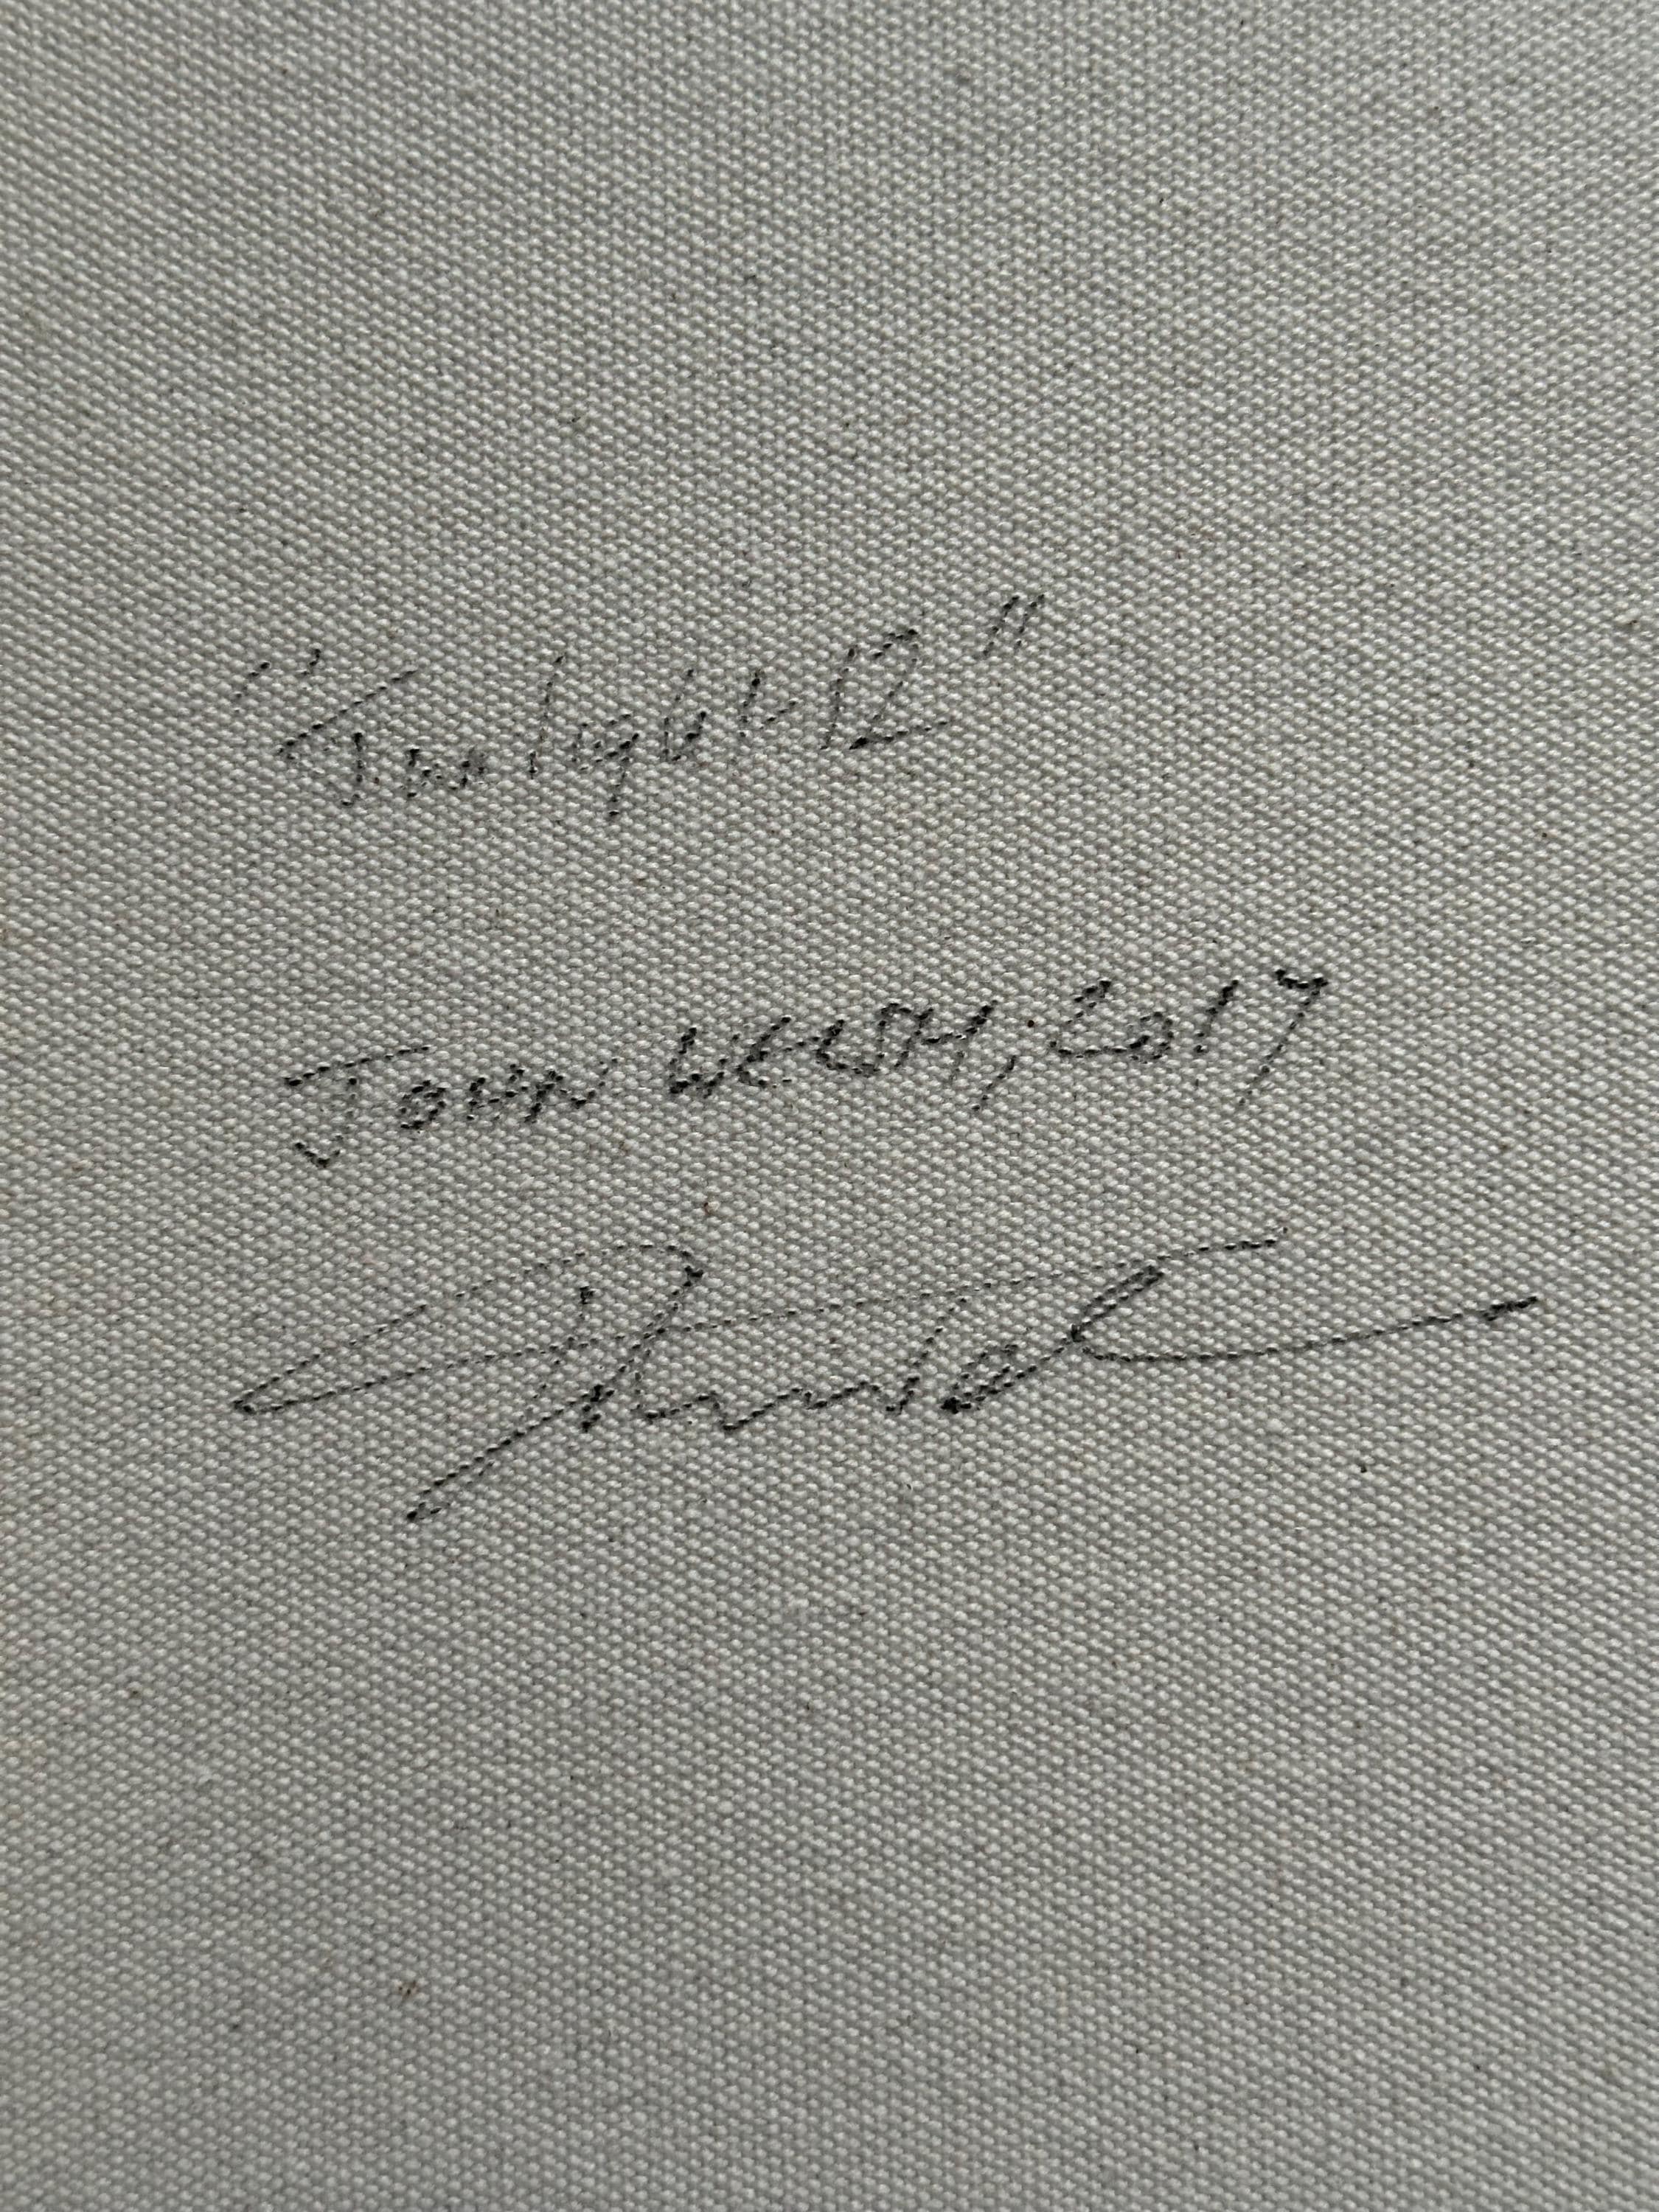 "Twilight 12"
JOHN WELSH, 2017